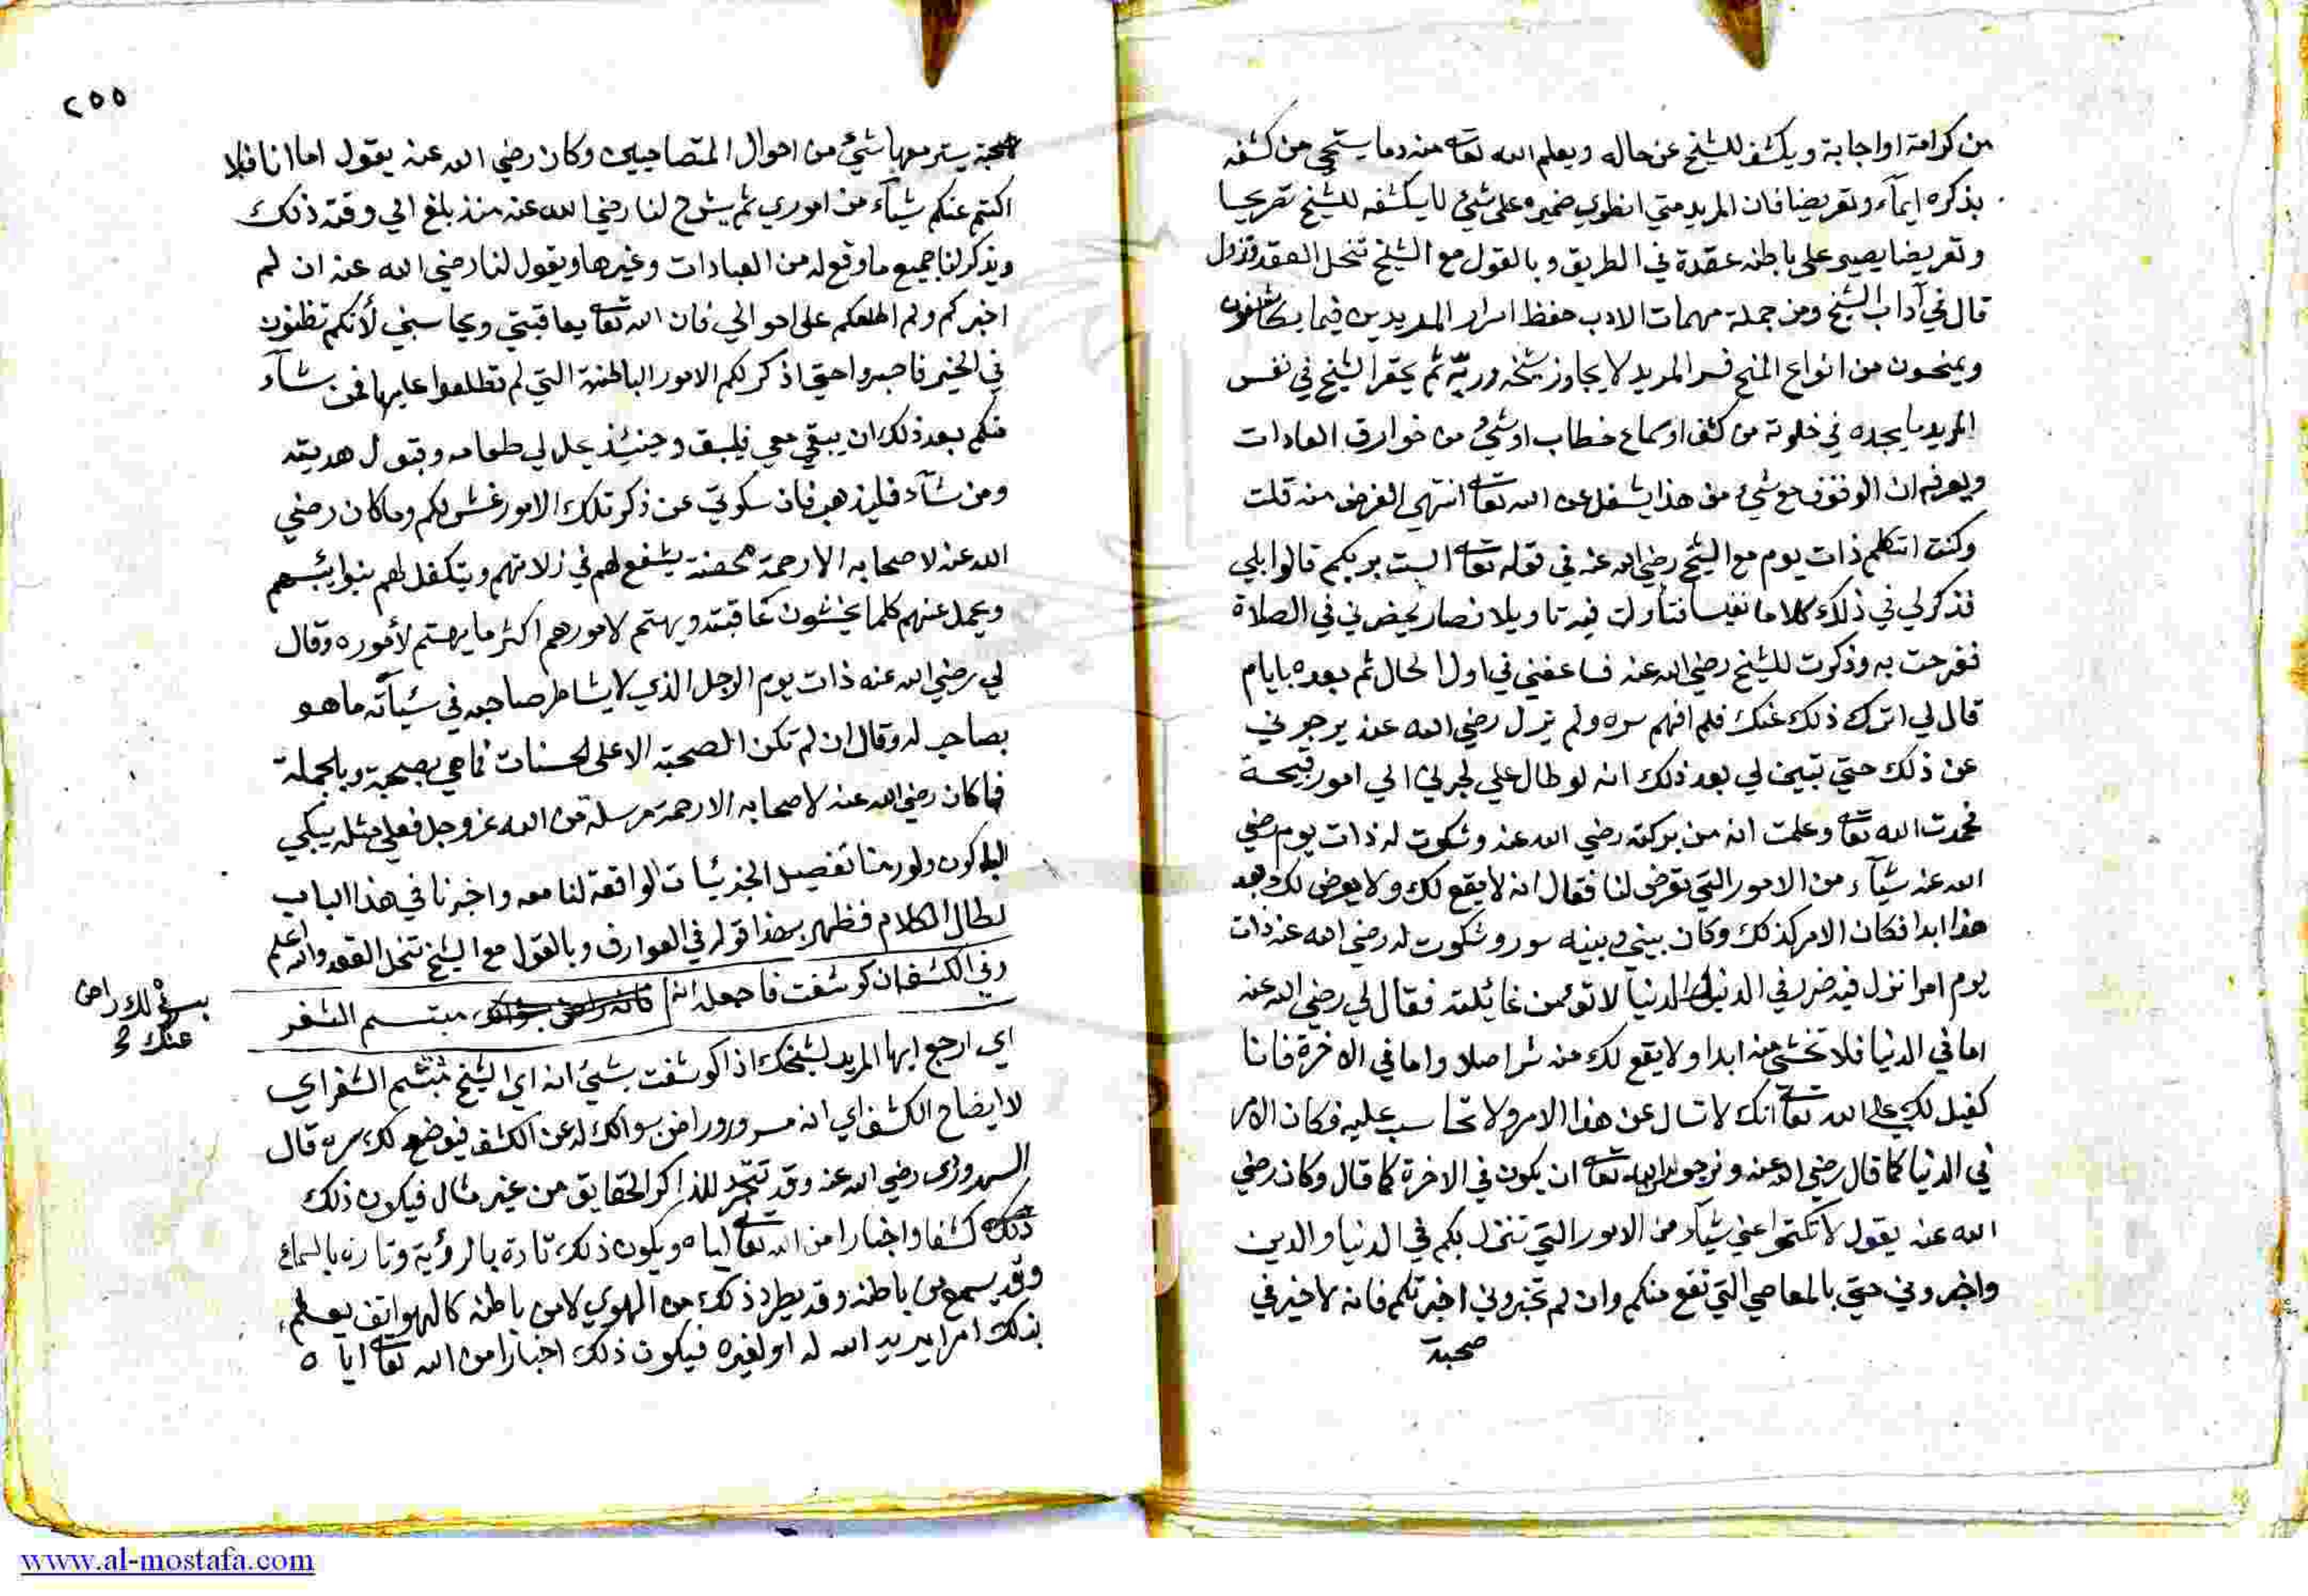 من كرامة او اجابة ويكشف للشيخ عن حاله ويعلم الله تعالى منه وما يستحي من كشفه
بذكره ايمآء وتعريضا فان المريد متي انطوي ضميره على شئ لا يكشفه للشيخ تصريحا
وتعريضا يصير على باطنه عقدة في الطريق وبالقول مع الشيخ تنحل العقد وتزول
قال في آداب الشيخ ومن جملة مهمات الادب حفظ اسرار المريدين فيما يكاشفون
ويمنحون من انواع المنح فسر المريد لا يجاوز شيخه وربه ثم يحقر الشيخ في نفس
المريد ما يجده في خلوته من كشف او سماع خطاب او شئ من خوارق العادات
ويعرفه ان الوقوف مع شئ من هذا يشغل عن الله تعالى انتهي الغرض منه قلت
وكنت اتكلم ذات يوم مع الشيخ رضي الله عنه في قوله تعالى الست بربكم قالوا بلي
فذكر لي في ذلك كلاما نفيسا فتأولت فيه تاويلا فصار يحضرني في الصلاة
ففرحت به وذكرت للشيخ رضي الله عنه فساعفني في اول الحال ثم بعده بايام
قال لي اترك ذلك عنك فلم افهم سره ولم يزل رضي الله عنه يزجرني
عن ذلك حتي تبين لي بعد ذلك انه لو طال علي لجرني الي امور قبيحة
فحمدت الله تعالى وعلمت انه من بركته رضي الله عنه وشكوت له ذات يوم رضي
الله عنه شيآء من الامور التي تعرض لنا فقال انه لا يقع لك ولا يعرض لك بعد
هذا ابدا فكان الامر كذلك وكان بيني وبينه سور وشكوت له رضي الله عنه ذات
يوم امرا نزل فيه ضرر في الدنيا والدنيا لا تؤمن غائلته فقال لي رضي الله عنه
اما في الدنيا فلا تخشى منه ابدا ولا يقع لك منه شر اصلا واما في الاخرة فانا
كفيل لك على الله تعالى انك لا تسال عن هذا الامر ولا تحاسب عليه فكان الامر
في الدنيا كما قال رضي الله عنه ونرجو الله تعالى ان يكون في الاخرة كما قال وكان رضي
الله عنه يقول لا تكتموا عني شيآء من الامور التي تنزل بكم في الدنيا والدين
واخبروني حتي بالمعاصي التي تقع منكم وان لم تخبروني اخبرتكم فانه لا خير في
صحبة
٢٥٥
صحبة يستر معها شئ من احوال المتصاحبين وكان رضي الله عنه يقول اما انا فلا
اكتم عنكم شيآء من اموري ثم يشرح لنا رضي الله عنه منذ بلغ الي وقته ذلك
ويذكر لنا جميع ما وقع له من العبادات وغيرها ويقول لنا رضي الله عنه ان لم
اخبركم ولم اطلعكم على احوالي فان الله تعالى يعاقبني ويحاسبني لأنكم تظنون
في الخير فاصبروا حتي اذكر لكم الامور الباطنة التي لم تطلعوا عليها فمن شآء
منكم بعد ذلك ان يبقي معي فليبق وحينئذ يحل لي طعامه وقبول هديته
ومن شآء فليذهب فان سكوتي عن ذكر تلك الامور غش لكم وما كان رضي
الله عنه لاصحابه الا رحمة محضة يشفع لهم في زلاتهم ويتكفل لهم بنوائبهم
ويحمل عنهم كلما يخشون عاقبته ويهتم لامورهم اكثر ما يهتم لأموره وقال
لي رضي الله عنه ذات يوم الرجل الذي لا يشاطر صاحبه في سيآته ما هو
بصاحب له وقال ان لم تكن الصحبة الا على الحسنات فما هي بصحبة وبالجملة
فما كان رضي الله عنه لاصحابه الا رحمة مرسلة من الله عز وجل فعلي مثله يبكي
الباكون ولو رمنا تفصيل الجزئيات الواقعة لنا معه واخبرنا في هذا الباب
لطال الكلام فظهر بهذا قوله في العوارف وبالقول مع الشيخ تنحل العقد والله اعلم
وفي الكشف ان كوشفت فاجعله انه مبتسم الثغر
بسؤالك راض
عنك صح
اي ارجع ايها المريد لشيخك اذا كوشفت بشئ انه اي الشيخ مبتسم الثغر اي
لايضاح الكشف اي انه مسرور وراض بسوالك له عن الكشف فيوضح لك سره قال
السهروردي رضي الله عنه وقد تتجرد للذاكر الحقايق من غير مثال فيكون ذلك
كشفا واخبارا من الله تعالى اياه ويكون ذلك تارة بالرؤية وتارة بالسماع
وقد يسمع من باطنه وقد يطرد ذلك من الهوي لا من باطنه كالهواتف يعلم
بذلك امرا يريد الله له او لغيره فيكون ذلك اخبارا من الله تعالى اياه
www.al-mostafa.com